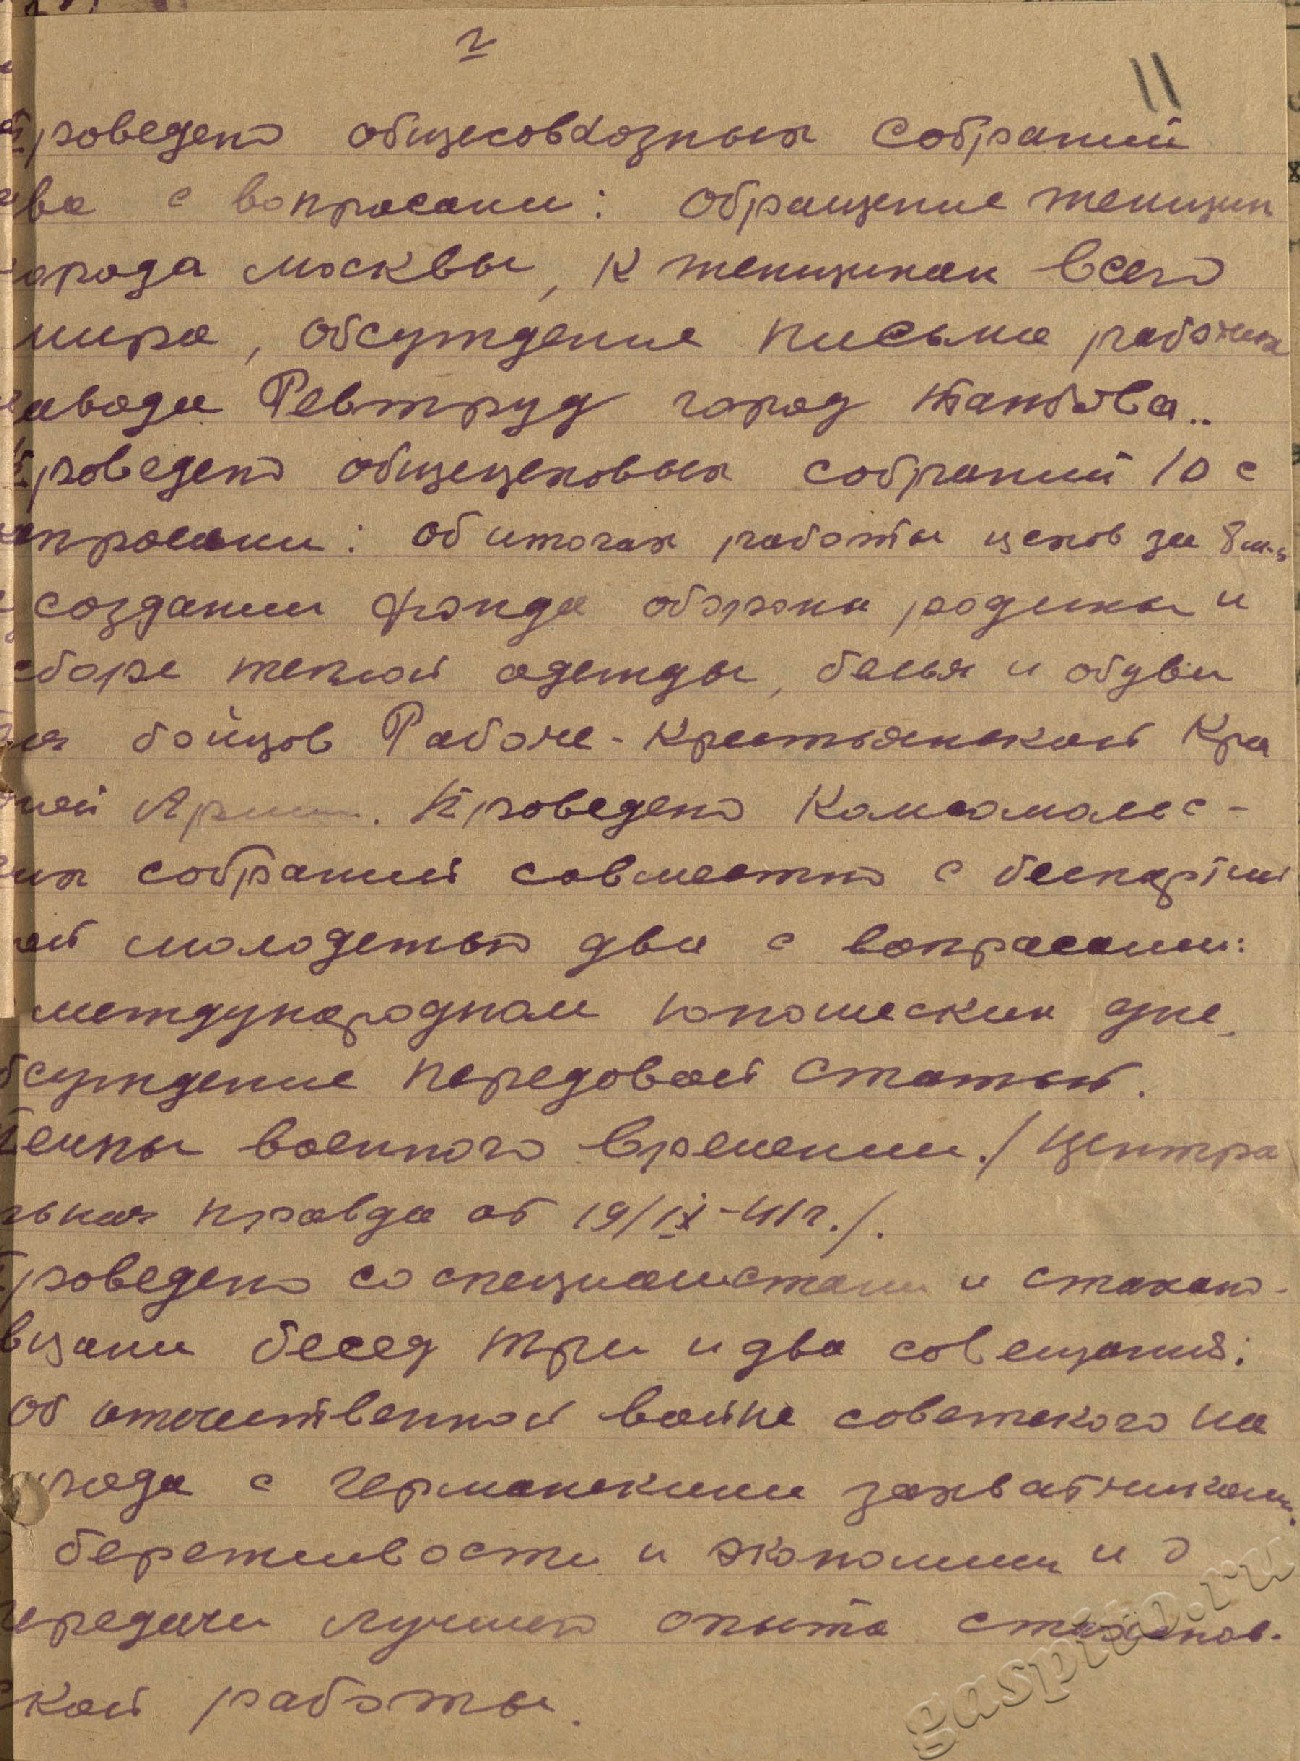 2
11
Проведено общесовхозных собраний
два с вопросами: обращение женщин
города москвы, к женщинам всего
мира, обсуждение письма рабочих
завода Ревтруд город Тамбова..
Проведено общецеховых собраний 10 с
вопросами: об итогах работы цехов за 8 м-ц
создании фонда обороны родины и
сборе теплой одежды, белья и обуви
для бойцов Рабоче-Крестьянской Кра
сной Армии. Проведено Комсомольс-
ких собраний совместно с беспартий
ной молодежью два с вопросами:
международном юношеским дне,
обсуждение передовой статьи.
Темпы военного времении./Центра
льная правда от 19/IX-41г./.
Проведено со специалистами и стахано-
вцами бесед три и два совещания:
об отечественной войне советского на
рода с германскими захватчиками.
бережливости и экономии и о
передачи лучшего опыта стаханов-
ской работы.
gaspito.ru